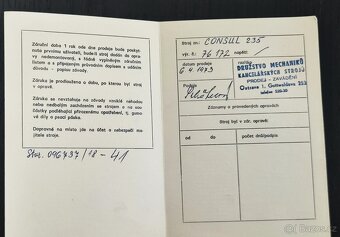 Záruční doba 1 rok ode dne prodeje bude poskyt-
nuta prvnímu uživateli, budeli stroj zaslán do opra-
vy nedemontovaný, s řádně vyplněným záručním
listem a s připojeným průvodním dopisem s udáním
důvodu — popisu závady.
Záruka je prodloužena o dobu, po kterou byl stroj
v opravě.
Záruka se nevztahuje na závady vzniklé nehodou
nebo nedbalým zacházením se strojem a na součástky
podléhající přirozenému opotřebení, t. j. gumové
díly a psací páska.
Dopravné na místo jde na účet a nebezpečí ma-
jitele stroje.
Stav. 096737/18-41
Stroj zn.: CONSUL 235
výr. čís.: 76 172
datum prodeje
6 4 1973
razítko
DRUŽSTVO MECHANIKŮ
KANCELÁŘSKÝCH STROJŮ
PRODEJ - ZAVÁDĚNÍ
Ostrava 1, Gottwaldova 253
Prodejna
Záznamy o provedených opravách
Stroj byl v zár. opravě:
od do počet dní/podpis